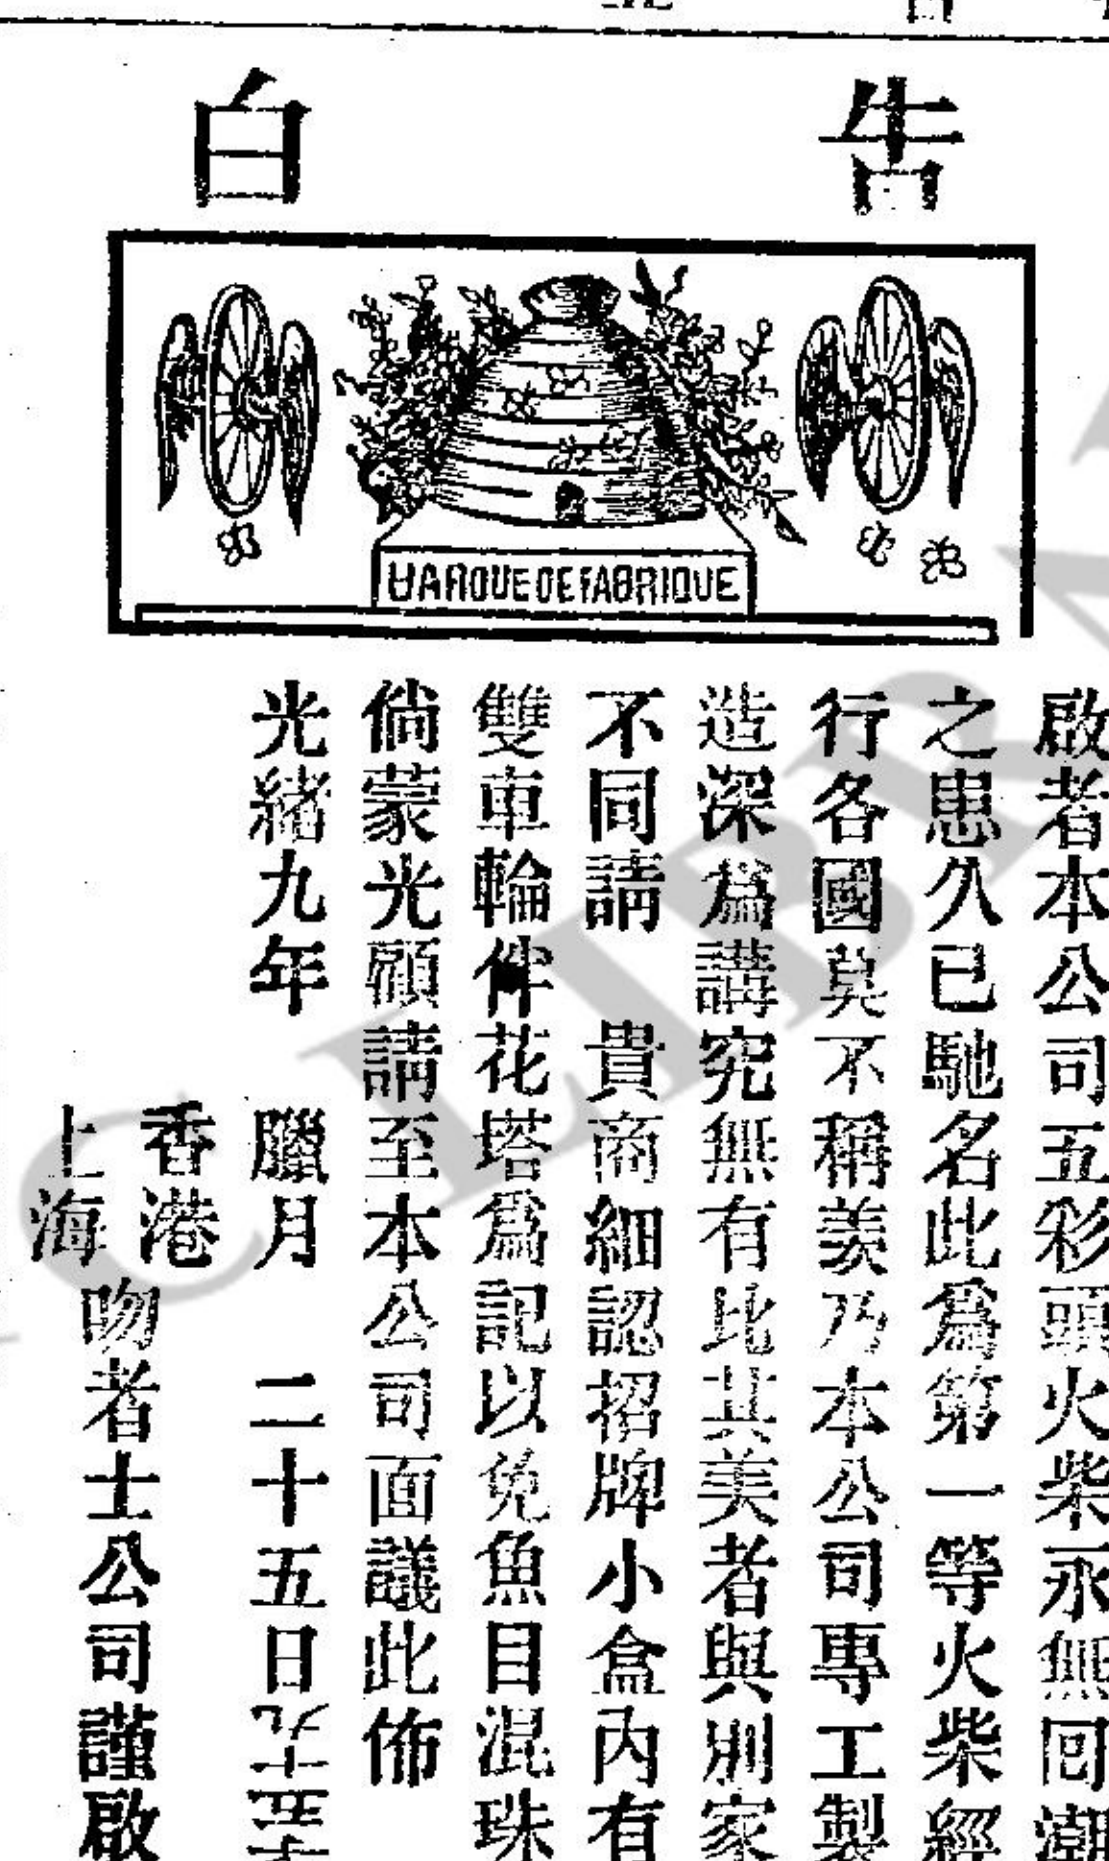 告白
MARQUE DE FABRIQUE
啟者本公司五彩頭火柴永無回潮
之患久已馳名此爲第一等火柴經
行各國莫不稱美乃本公司專工製
造深爲講究無有比其美者與別家
不同請 貴商細認招牌小盒內有
雙車輪伴花塔爲記以免魚目混珠
倘蒙光顧請至本公司面議此佈
光緒九年 臘月 二十五日
香港
上海
吻者士公司謹啟
LIBRA